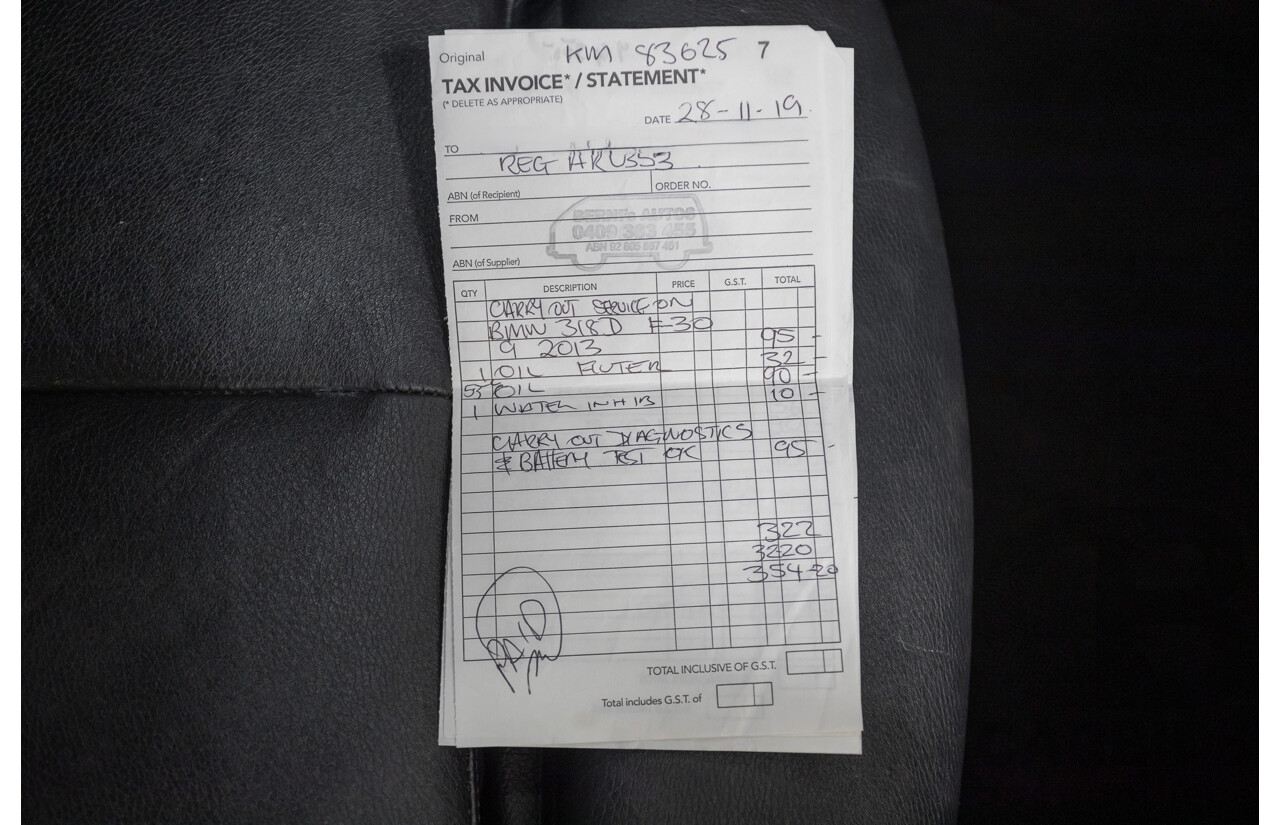 Original KM 83625 7
TAX INVOICE* / STATEMENT*
(* DELETE AS APPROPRIATE)
DATE 28-11-19
TO
REG
ABN (of Recipient) ORDER NO.
FROM
AUTOS
ABN (of Supplier)
QTY DESCRIPTION PRICE G.S.T. TOTAL
CARRY OUT SERVICE ON
BMW 318D F-30
9 2013 95 -
1 OIL FILTER 32 -
OIL 90 -
1 WATER INHIB 10 -
CARRY OUT DIAGNOSTICS
& BATTERY TEST OK 95 -
322
3220
354-20
PAID
TOTAL INCLUSIVE OF G.S.T.
Total includes G.S.T. of